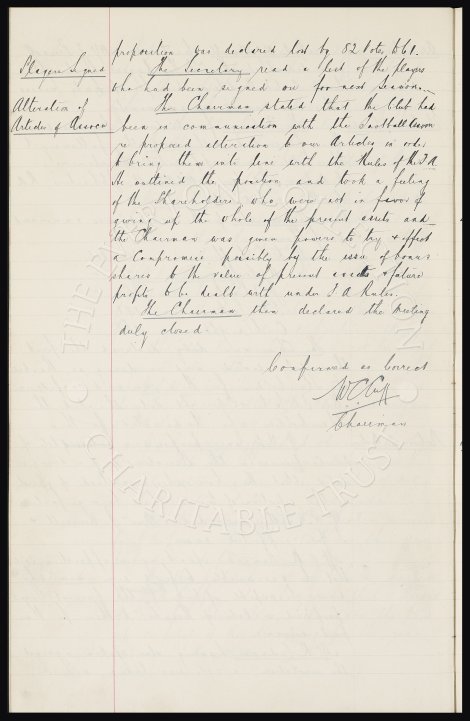 proposition was declared lost by 82 Votes to 61.
Players Signed
The Secretary read a list of the players
who had been signed on for next season.
Alteration of
Articles of Assocn
The Chairman stated that the Club had
been in communication with the Football Assocn
re proposed alteration to our Articles in order
to bring them into line with the Rules of the F.A.
He outlined the position and took a feeling
of the Shareholders who were not in favor of
giving up the whole of the present assets and
the Chairman was given powers to try & effect
a Compromise possibly by the issue of bonus
shares to the value of present assets & future
profits to be dealt with under F.A. Rules.
The Chairman then declared the Meeting
duly closed.
Confirmed as Correct
W.C. Cuff
Chairman
CHARITABLE TRUST